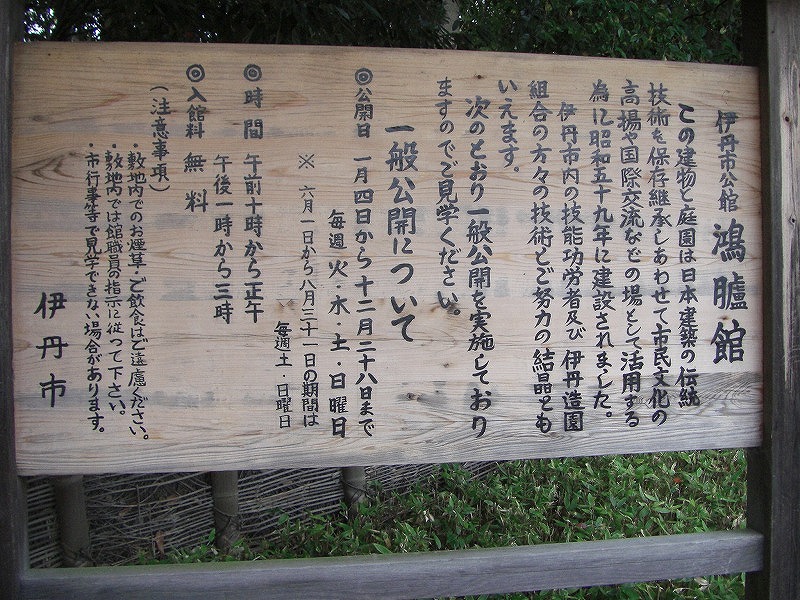 伊丹市公館 鴻臚館
この建物と庭園は日本建築の伝統
技術を保存継承しあわせて市民文化の
高揚や国際交流などの場として活用する
為に昭和五十九年に建設されました。
伊丹市内の技能功労者及び伊丹造園
組合の方々の技術とご努力の結晶とも
いえます。
次のとおり一般公開を実施しており
ますのでご見学ください。
一般公開について
◎公開日 一月四日から十二月二十八日まで
毎週 火・水・土・日曜日
※ 六月一日から八月三十一日の期間は
毎週土・日曜日
◎時間 午前十時から正午
午後一時から三時
◎入館料 無料
(注意事項)
・敷地内でのお煙草・ご飲食はご遠慮ください。
・敷地内では館職員の指示に従って下さい。
・市行事等で見学できない場合があります。
伊丹市